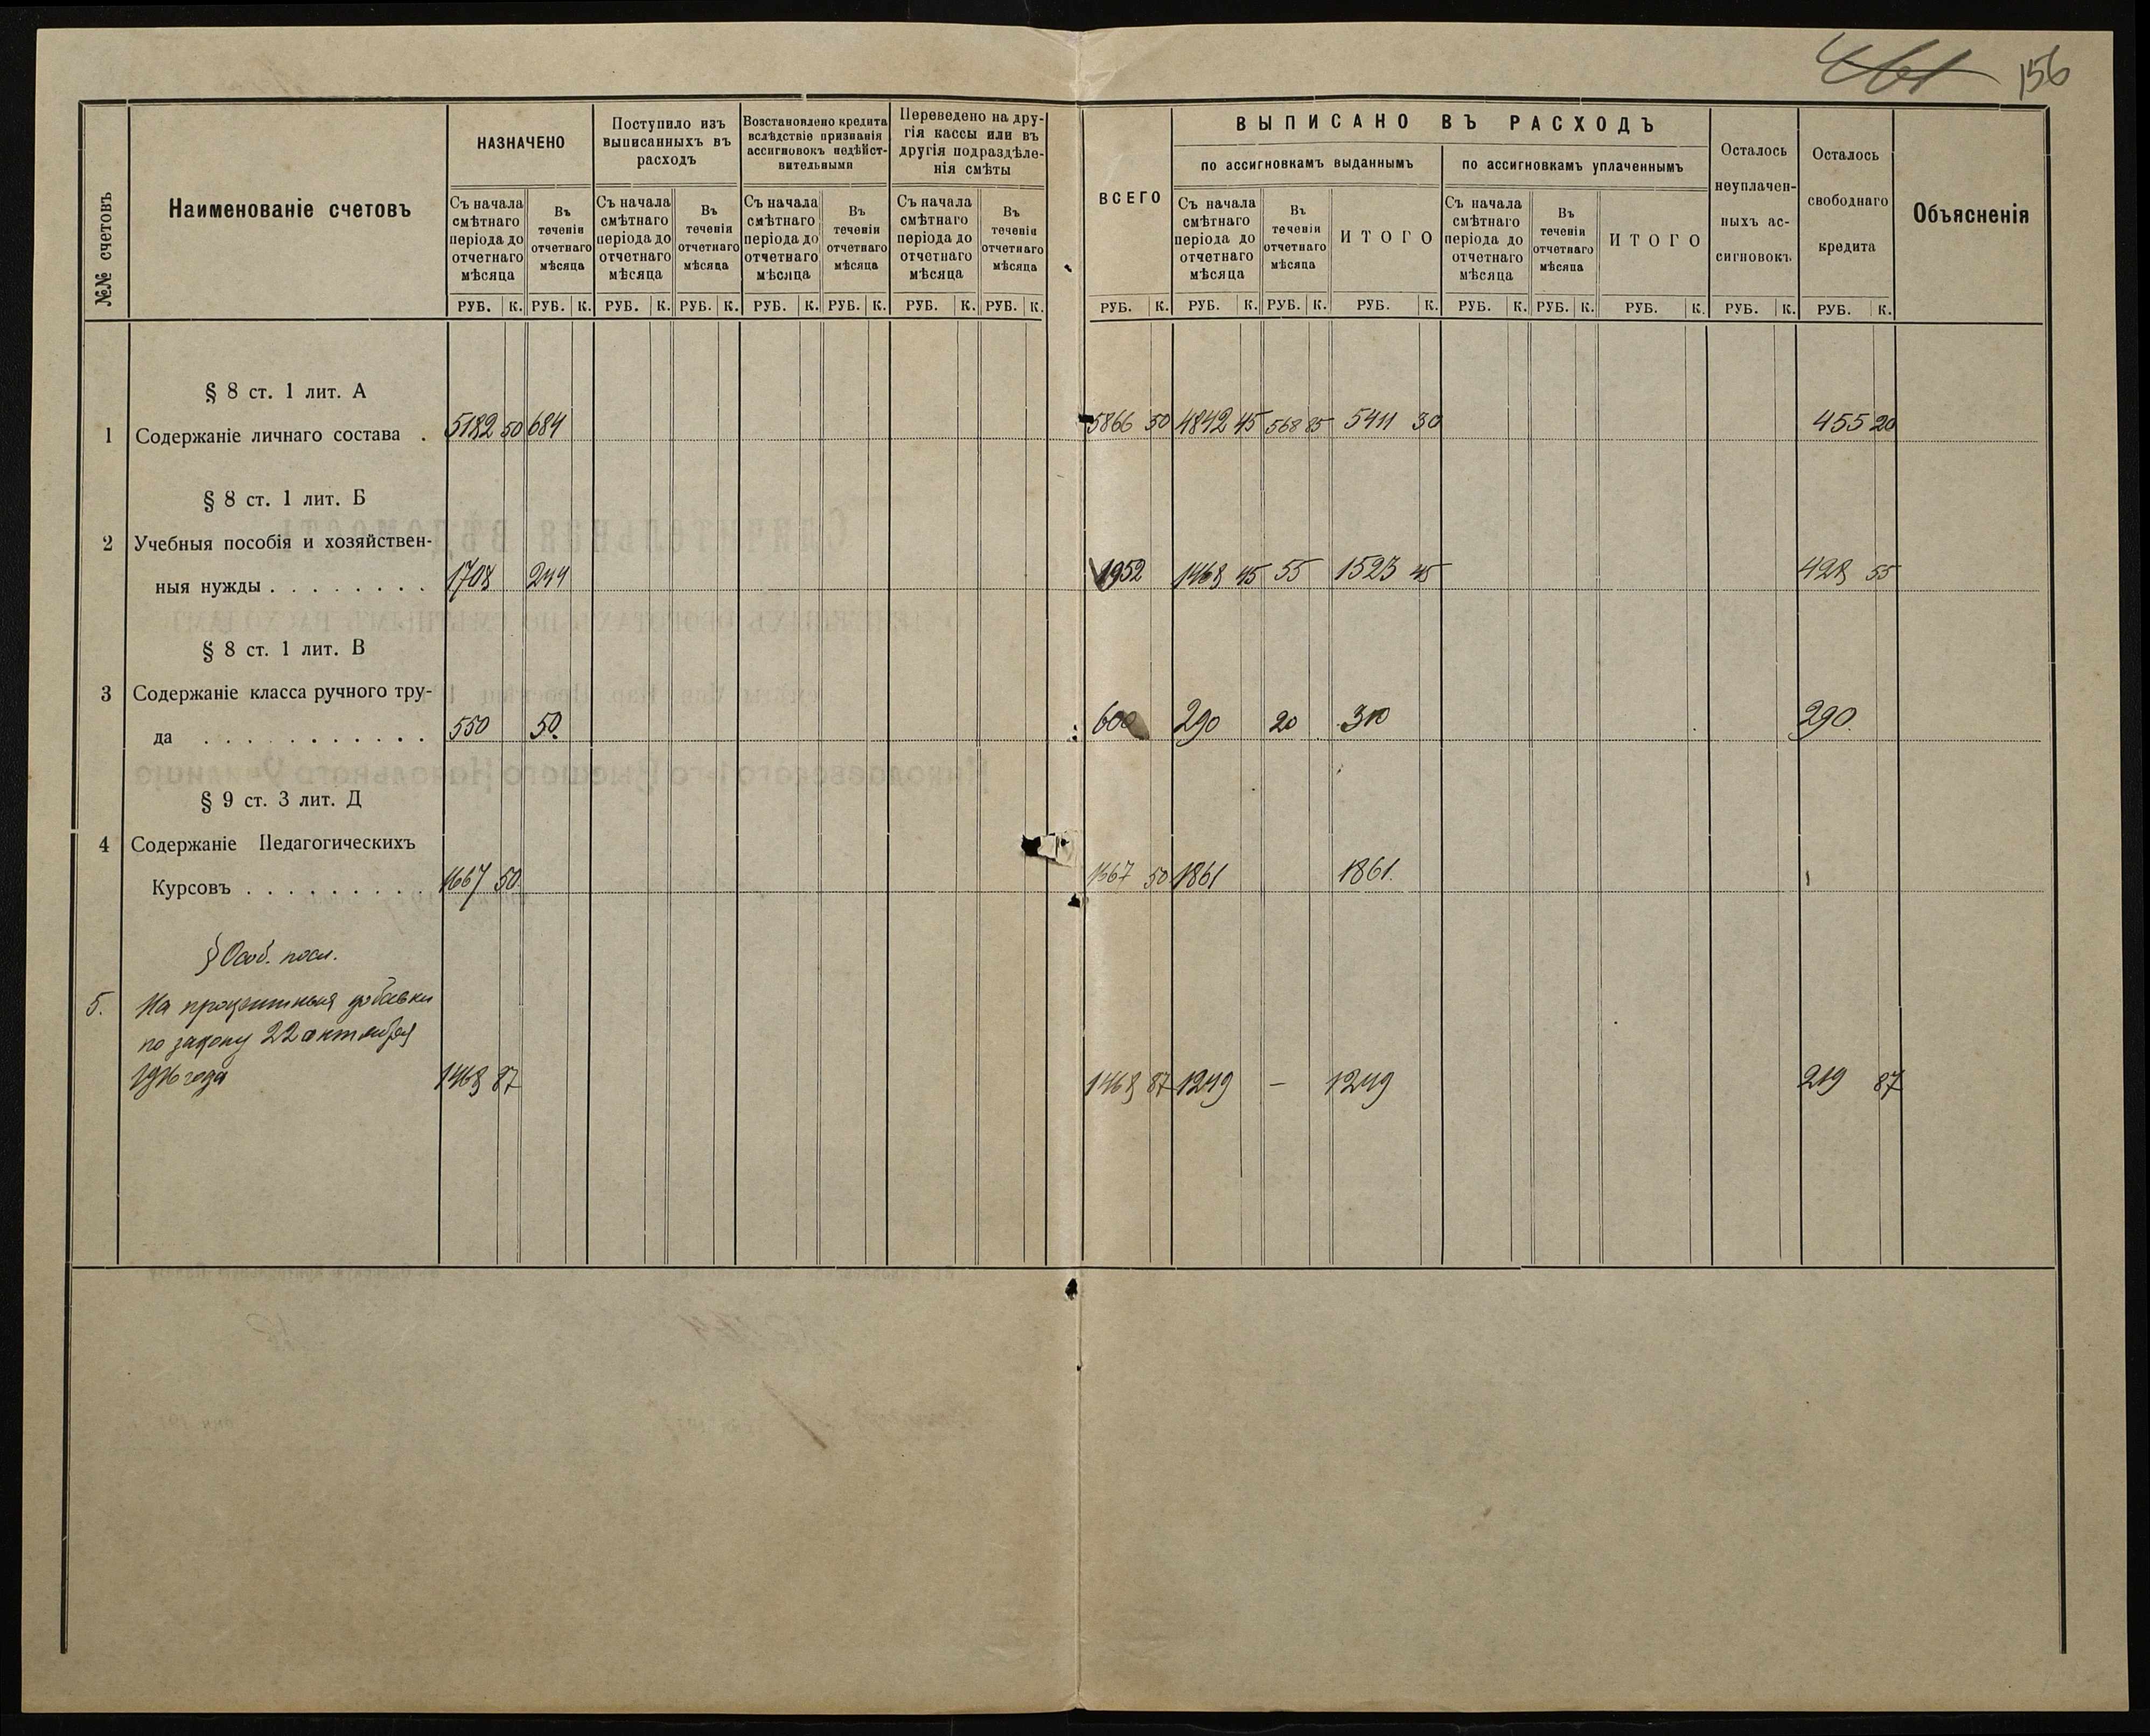 156
№№ счетовъ
Наименованіе счетовъ
НАЗНАЧЕНО
Поступило изъ
выписанныхъ въ
расходъ
Возстановлено кредита
вслѣдствіе признанія
ассигновокъ недѣйст-
вительными
Переведено на дру-
гія кассы или въ
другія подраздѣле-
нія смѣты
ВСЕГО
ВЫПИСАНО ВЪ РАСХОДЪ
по ассигновкамъ выданнымъ
по ассигновкамъ уплаченнымъ
Осталось
неуплачен-
ныхъ ас-
сигновокъ
Осталось
свободнаго
кредита
Объясненія
Съ начала
смѣтнаго
періода до
отчетнаго
мѣсяца
Въ
теченіи
отчетнаго
мѣсяца
Съ начала
смѣтнаго
періода до
отчетнаго
мѣсяца
Въ
теченіи
отчетнаго
мѣсяца
Съ начала
смѣтнаго
періода до
отчетнаго
мѣсяца
Въ
теченіи
отчетнаго
мѣсяца
Съ начала
смѣтнаго
періода до
отчетнаго
мѣсяца
Въ
теченіи
отчетнаго
мѣсяца
Съ начала
смѣтнаго
періода до
отчетнаго
мѣсяца
Въ
теченіи
отчетнаго
мѣсяца
ИТОГО
Съ начала
смѣтнаго
періода до
отчетнаго
мѣсяца
Въ
теченіи
отчетнаго
мѣсяца
ИТОГО
РУБ. К. РУБ. К. РУБ. К. РУБ. К. РУБ. К. РУБ. К. РУБ. К. РУБ. К. РУБ. К. РУБ. К. РУБ. К. РУБ. К. РУБ. К. РУБ. К. РУБ. К. РУБ. К. РУБ. К.
§ 8 ст. 1 лит. А
1 Содержаніе личнаго состава . 5182 50 684 5866 50 4842 45 568 85 5411 30 455 20
§ 8 ст. 1 лит. Б
2 Учебныя пособія и хозяйствен-
ныя нужды . . . . . . . . 1708 244 1952 1468 45 55 1523 45 428 55
§ 8 ст. 1 лит. В
3 Содержаніе класса ручного тру-
да . . . . . . . . . . . 550 50. 600 290 20 310 290.
§ 9 ст. 3 лит. Д
4 Содержаніе Педагогическихъ
Курсовъ . . . . . . . . . 1667 50 50 1861 1861.
§ Особ. посл.
5. На процентныя добавки
по закону 22 октября
1916 года 1468 87 1468 87 1249 — 1249 219 87